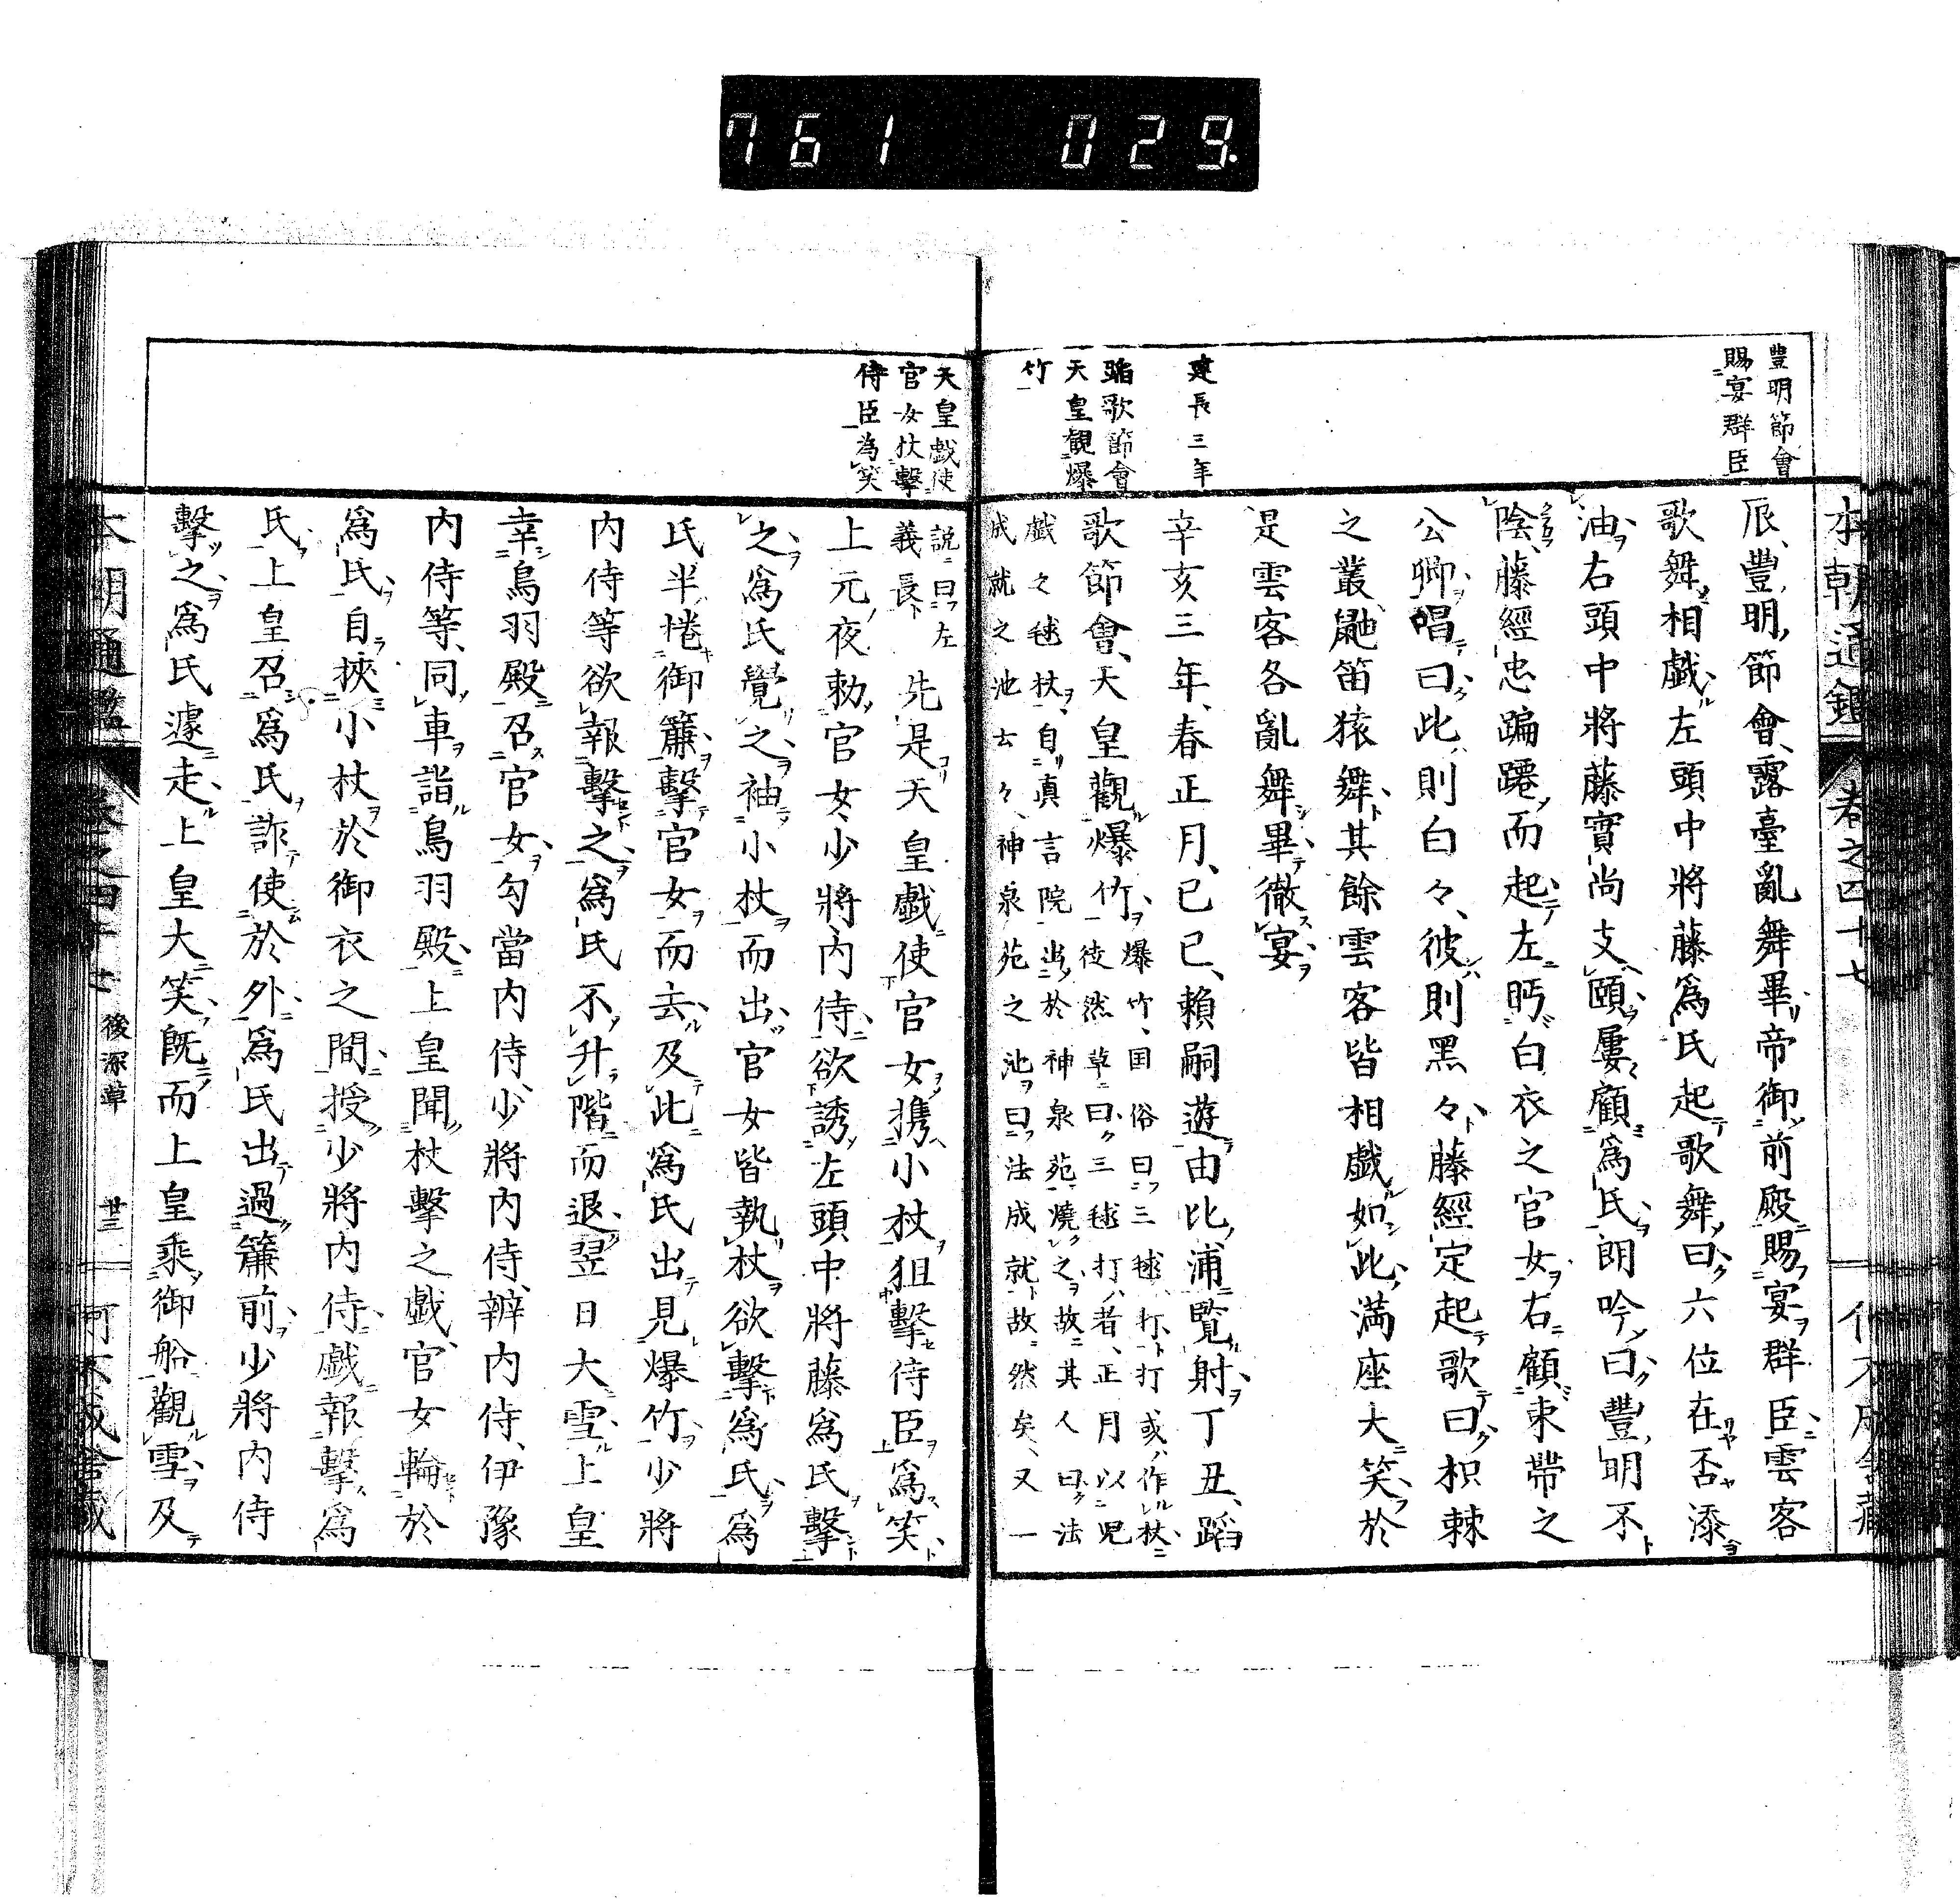 761 029.
豊明節會
賜宴群臣
建長三年
蹈歌節會
天皇觀爆
竹
本朝通鑑 卷之四十七
辰、豐明節會、露臺亂舞畢帝御前殿賜宴群臣雲客
歌舞相戯左頭中將藤爲氏起歌舞曰六位在否添
油右頭中將藤實尚支頤屢顧爲氏朗吟曰豐明不
陰、藤經忠蹁躚而起左眄白衣之官女右顧束帶之
公卿唱曰此則白々、彼則黑々藤經定起歌曰枳棘
之叢鼬笛猿舞其餘雲客皆相戯如此滿座大笑於
是雲客各亂舞畢徹宴
辛亥三年、春正月、己巳、賴嗣遊由比浦覽射丁丑、蹈
歌節會、天皇觀爆竹
爆竹、国俗曰三毬打、打或作杖
徒然草曰三毬打者、正月以兒
戲之毬杖自真言院出於神泉苑燒之故其人曰法
成就之池云々、神泉苑之池曰法成就故然矣、又一
天皇戯使
官女杖擊
侍臣為笑
説曰左
義長
先是天皇戯使官女携小杖狙擊侍臣爲笑
上元夜勅官女少將内侍欲誘左頭中將藤爲氏擊
之爲氏覺之袖小杖而出官女皆執杖欲擊爲氏爲
氏半捲御簾擊官女而去及此爲氏出見爆竹少將
内侍等欲報擊之爲氏不升階而退翌日大雪上皇
幸鳥羽殿召官女勾當内侍、少將内侍、辨内侍、伊豫
内侍等、同車詣鳥羽殿上皇聞杖擊之戯官女輪於
爲氏自挾小杖於御衣之間授少將内侍戯報擊爲
氏上皇召爲氏詐使於外爲氏出過簾前少將内侍
擊之爲氏遽走上皇大笑既而上皇乘御船觀雪及
後深草
廿三